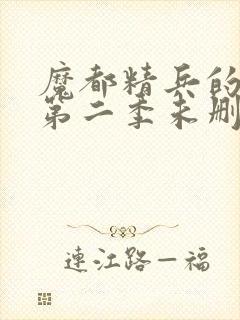 魔都精兵的
第二季未删
連江路－福